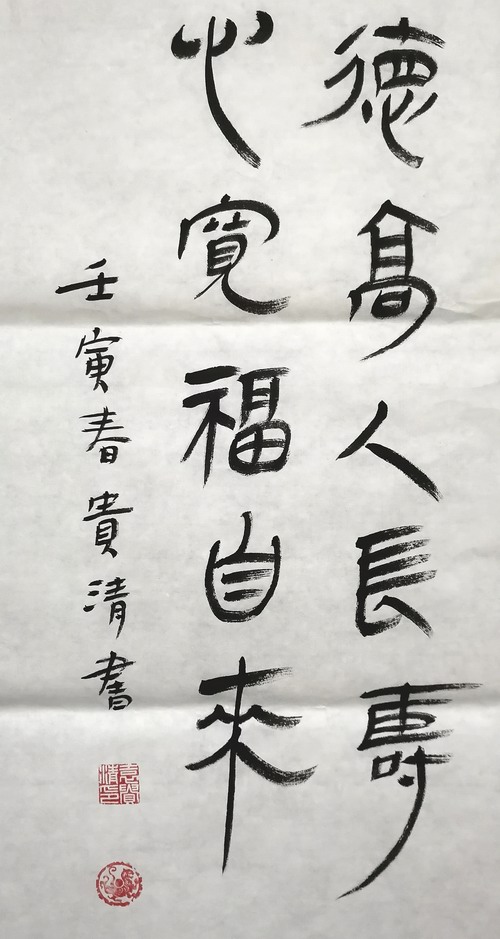 德高人長壽
心寬福自來
壬寅春貴清書